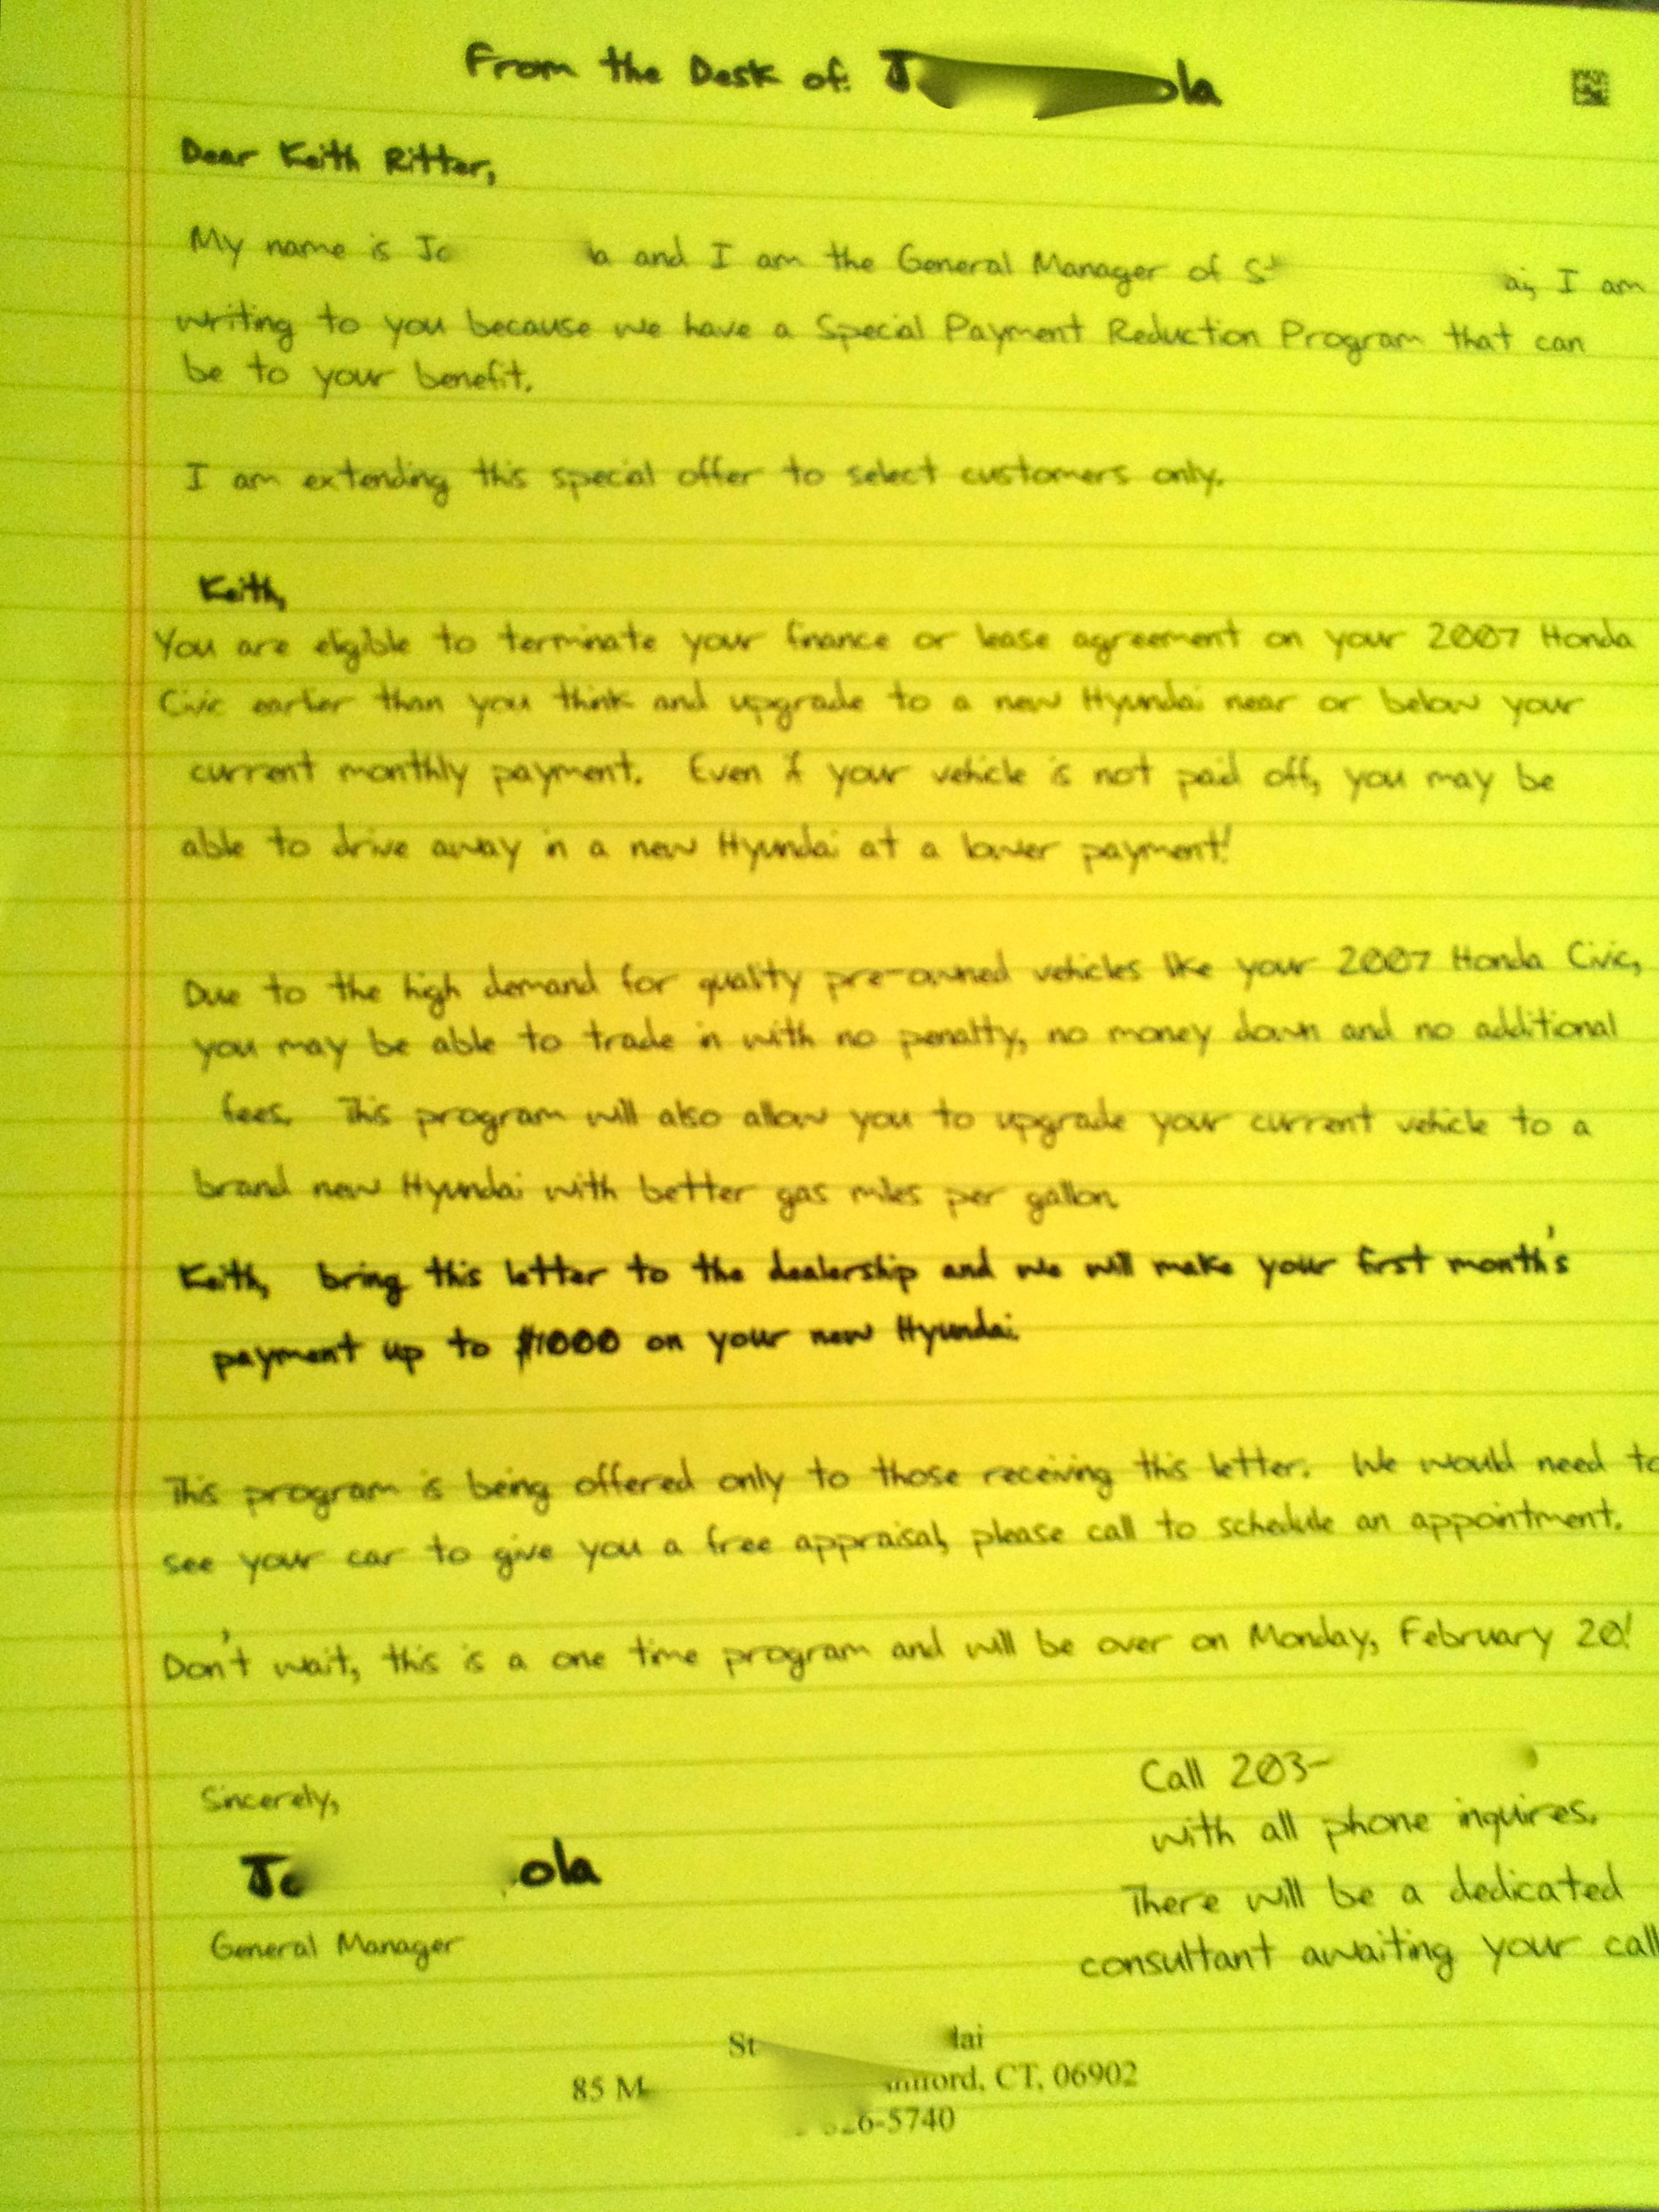 From the Desk of: J ola
Dear Keith Ritter,
My name is Jo a and I am the General Manager of St ai, I am
writing to you because we have a Special Payment Reduction Program that can
be to your benefit.
I am extending this special offer to select customers only.
Keith,
You are eligible to terminate your finance or lease agreement on your 2007 Honda
Civic earlier than you think and upgrade to a new Hyundai near or below your
current monthly payment. Even if your vehicle is not paid off, you may be
able to drive away in a new Hyundai at a lower payment!
Due to the high demand for quality pre-owned vehicles like your 2007 Honda Civic,
you may be able to trade in with no penalty, no money down and no additional
fees. This program will also allow you to upgrade your current vehicle to a
brand new Hyundai with better gas miles per gallon.
Keith, bring this letter to the dealership and we will make your first month's
payment up to $1000 on your new Hyundai.
This program is being offered only to those receiving this letter. We would need to
see your car to give you a free appraisal, please call to schedule an appointment.
Don't wait, this is a one time program and will be over on Monday, February 20!
Sincerely,
Jo ola
General Manager
Call 203-
with all phone inquires.
There will be a dedicated
consultant awaiting your call
St dai
85 M ford, CT, 06902
26-5740